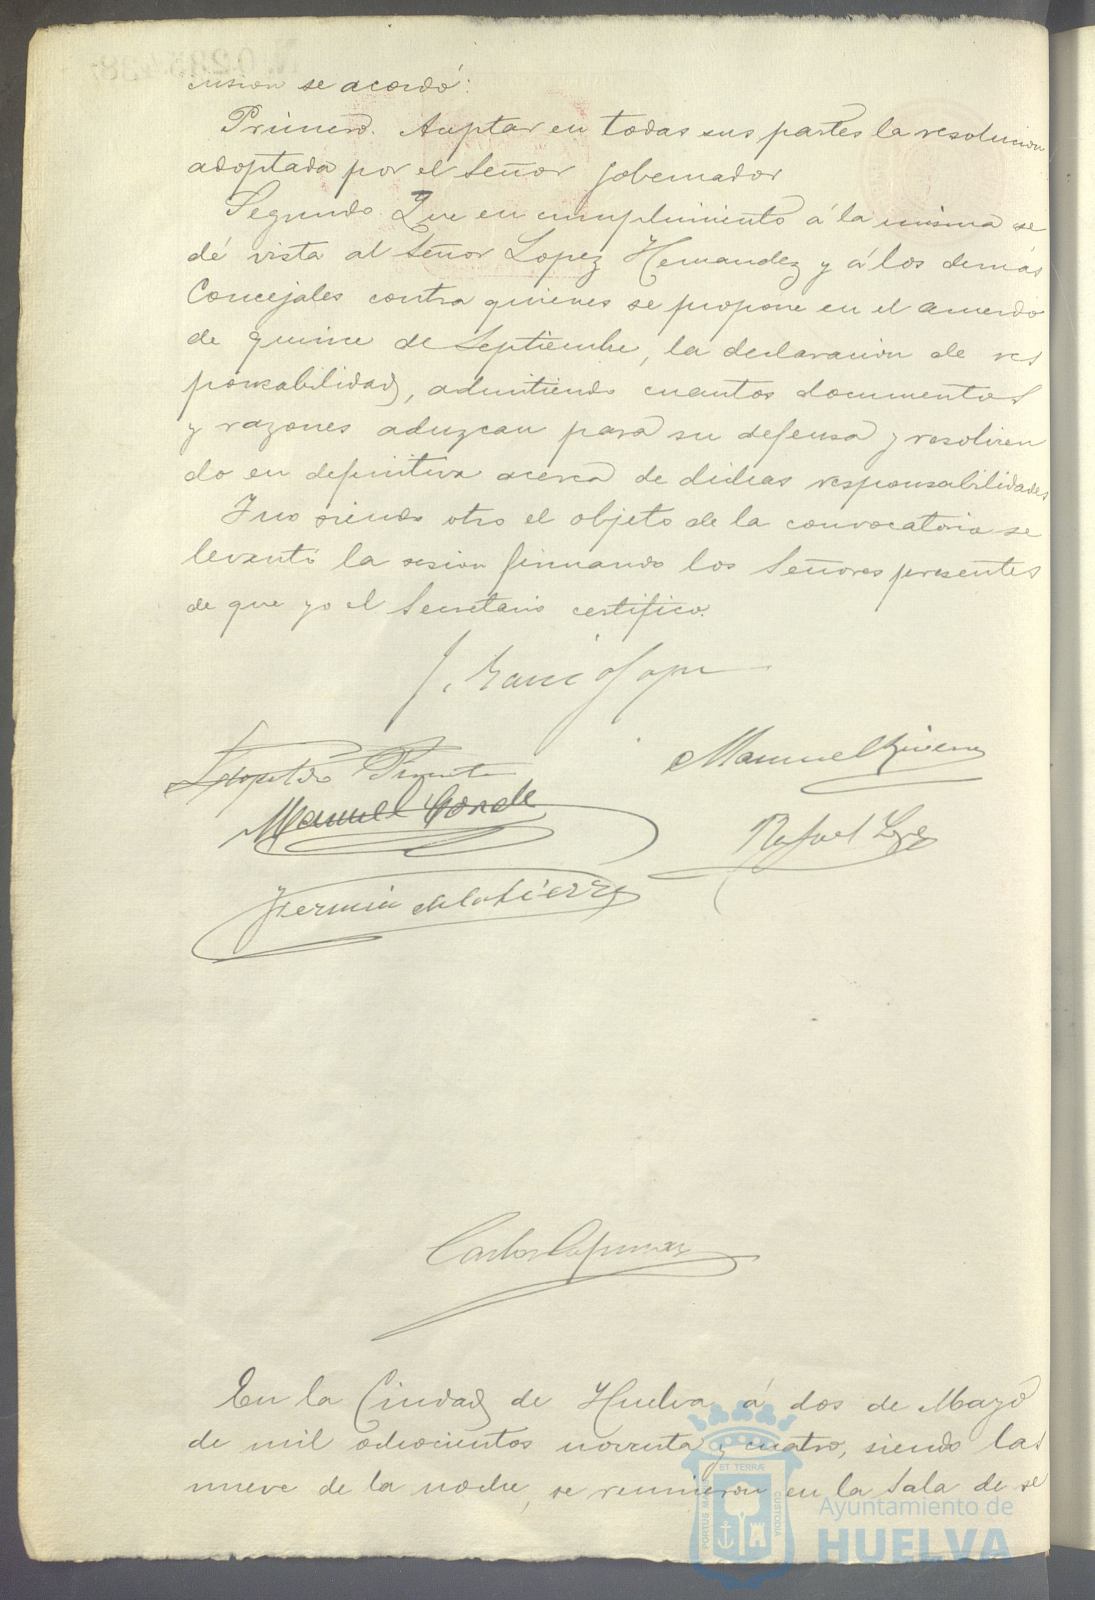 cusion se acordó:
Primero. Aceptar en todas sus partes la resolucion
adoptada por el Señor Gobernador
Segundo. Que en cumplimiento á la misma se
dé vista al Señor Lopez Hernandez y á los demás
Concejales contra quienes se propone en el acuerdo
de quince de Septiembre, la declaracion de res
ponsabilidad, admitiendo cuantos documentos
y razones aduzcan para su defensa y resolvien
do en definitiva acerca de dichas responsabilidades
Y no siendo otro el objeto de la convocatoria se
levantó la sesion firmando los Señores presentes
de que yo el Secretario certifico.
J. Garcia Lopez
Manuel
Manuel Conde
Rafael Lopez
Fermin de la Sierra
Carlos
En la Ciudad de Huelva á dos de Mayo
de mil ochocientos noventa y cuatro, siendo las
nueve de la noche, se reunieron en la Sala de se
ET TERRÆ
PORTUS MARIS
CUSTODIA
Ayuntamiento de
HUELVA